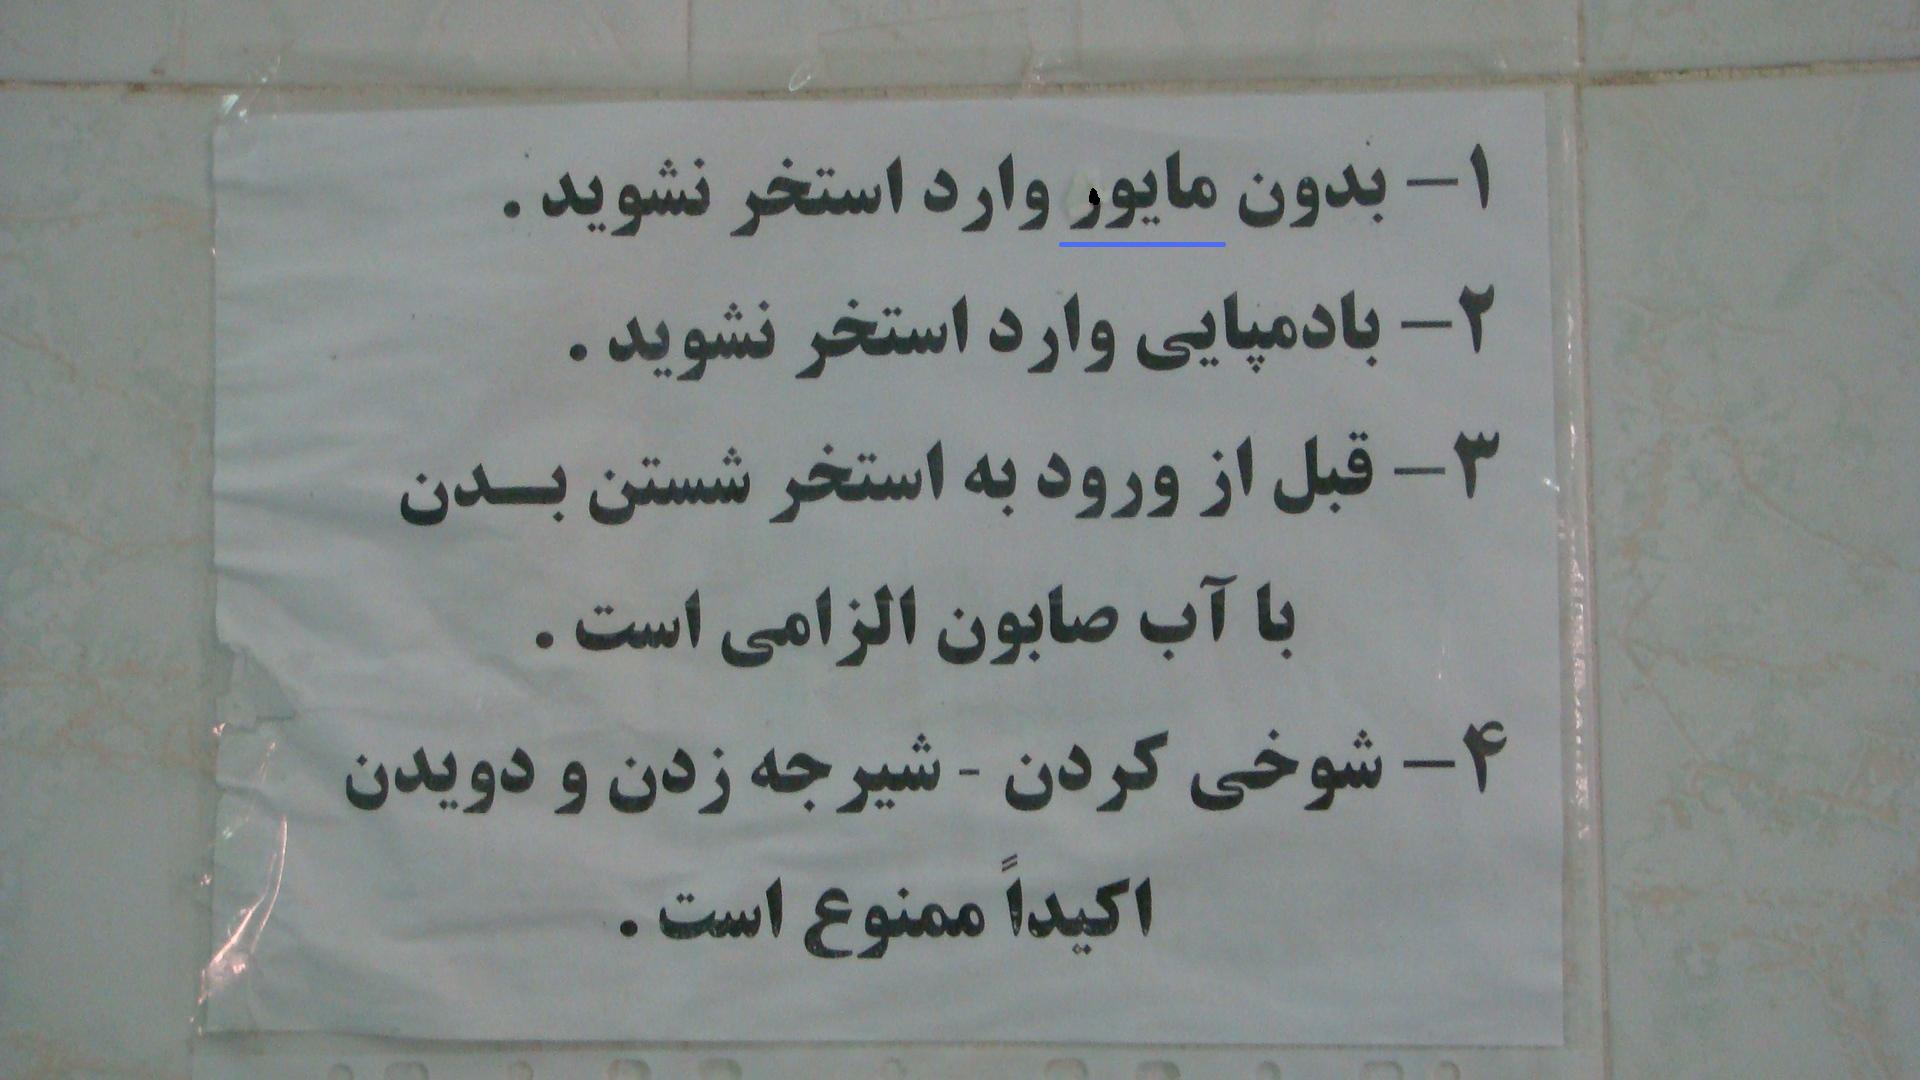 ۱- بدون مایور وارد استخر نشوید .
۲- بادمپایی وارد استخر نشوید .
۳- قبل از ورود به استخر شستن بـدن
با آب صابون الزامی است .
۴- شوخی کردن - شیرجه زدن و دویدن
اکیداً ممنوع است .